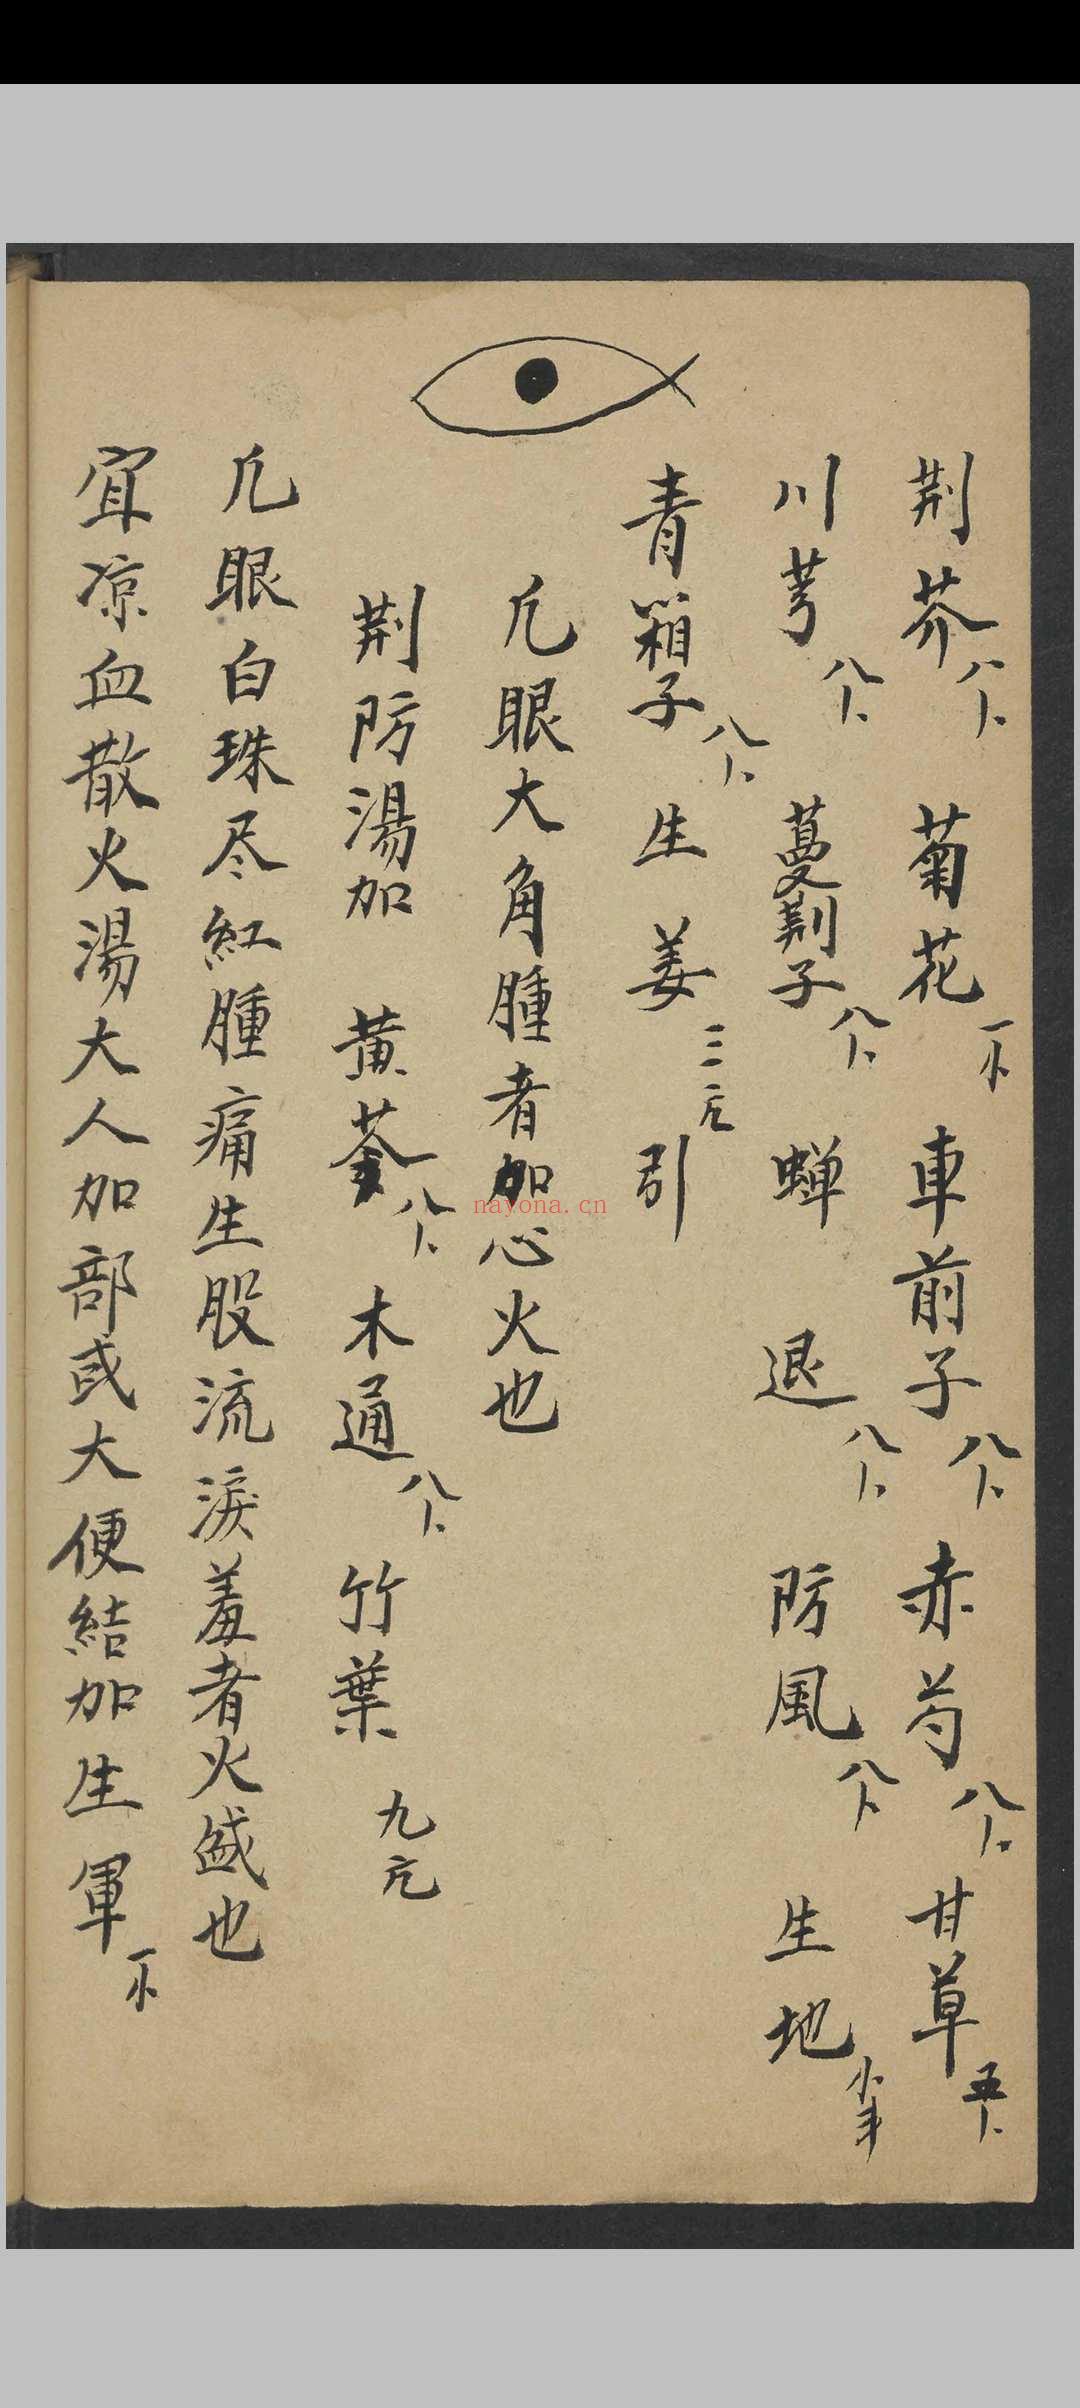 荆芥 八卜 菊花 一不 車前子 八卜 赤芍 八卜 甘草 五卜
川芎 八卜 蔓荆子 八卜 蝉退 八卜 防風 八卜 生地
青箱子 八卜 生姜 三片 引
凡眼大角腫者加心火也
荆防湯加 黄芩 八卜 木通 八卜 竹葉 九片
凡眼白珠尽紅腫痛生股流淚羞者火盛也
宜凉血散火湯大人加部或大便結加生軍
nayona.cn